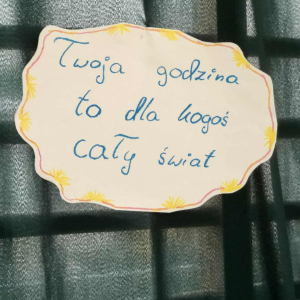 Twoja godzina
to dla kogoś
cały świat